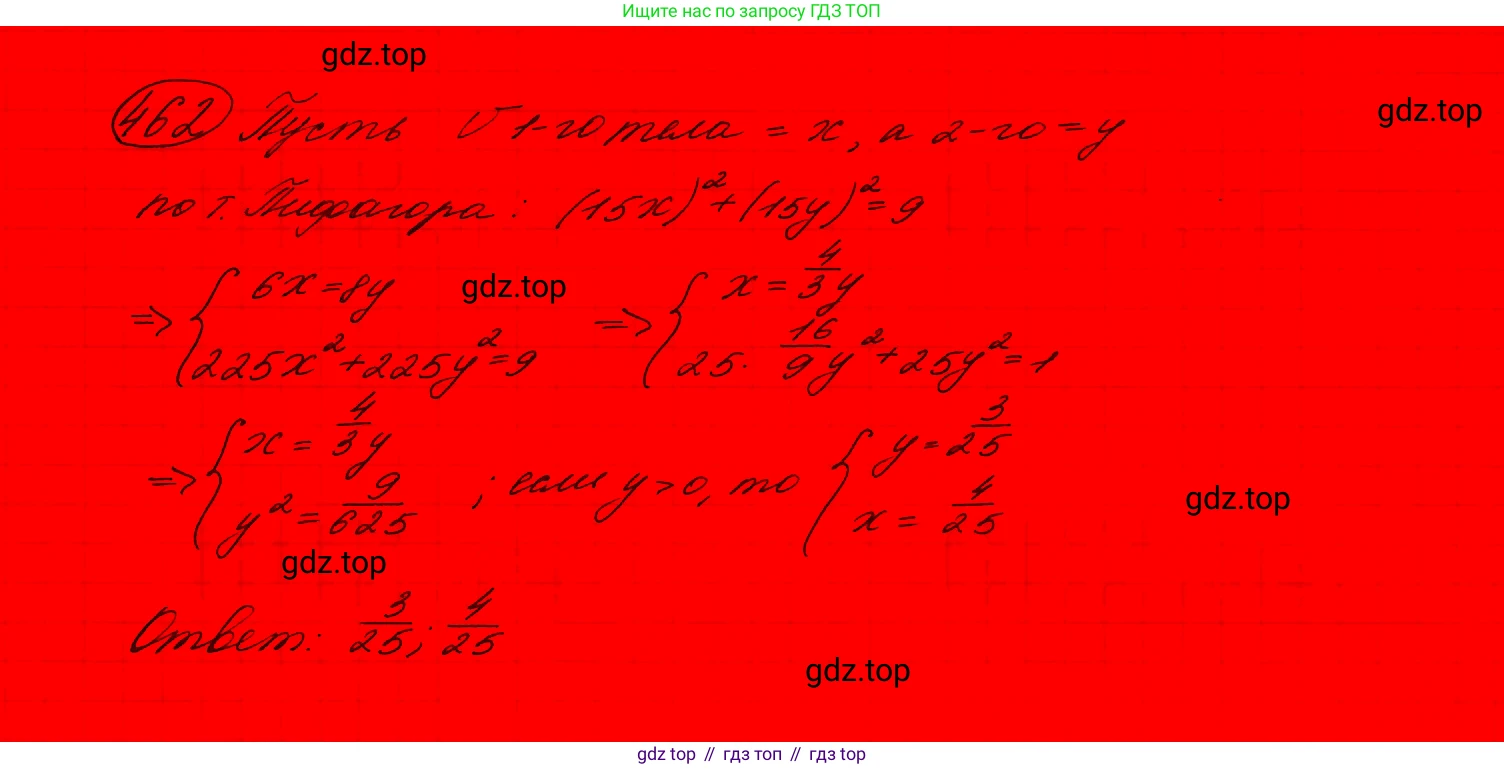 Ищите нас по запросу ГДЗ ТОП
gdz.top
462 Пусть V 1-го тела = x, а 2-го = y
gdz.top
по т. Пифагора: (15x)² + (15y)² = 9
⇒ { 6x = 8y gdz.top ⇒ { x = 4/3 y
225x² + 225y² = 9 25 · 16/9 y² + 25y² = 1
⇒ { x = 4/3 y { y = 3/25
y² = 9/625 ; если y > 0, то x = 4/25
gdz.top
gdz.top
Ответ: 3/25; 4/25
gdz.top
gdz top // гдз топ // гдз top